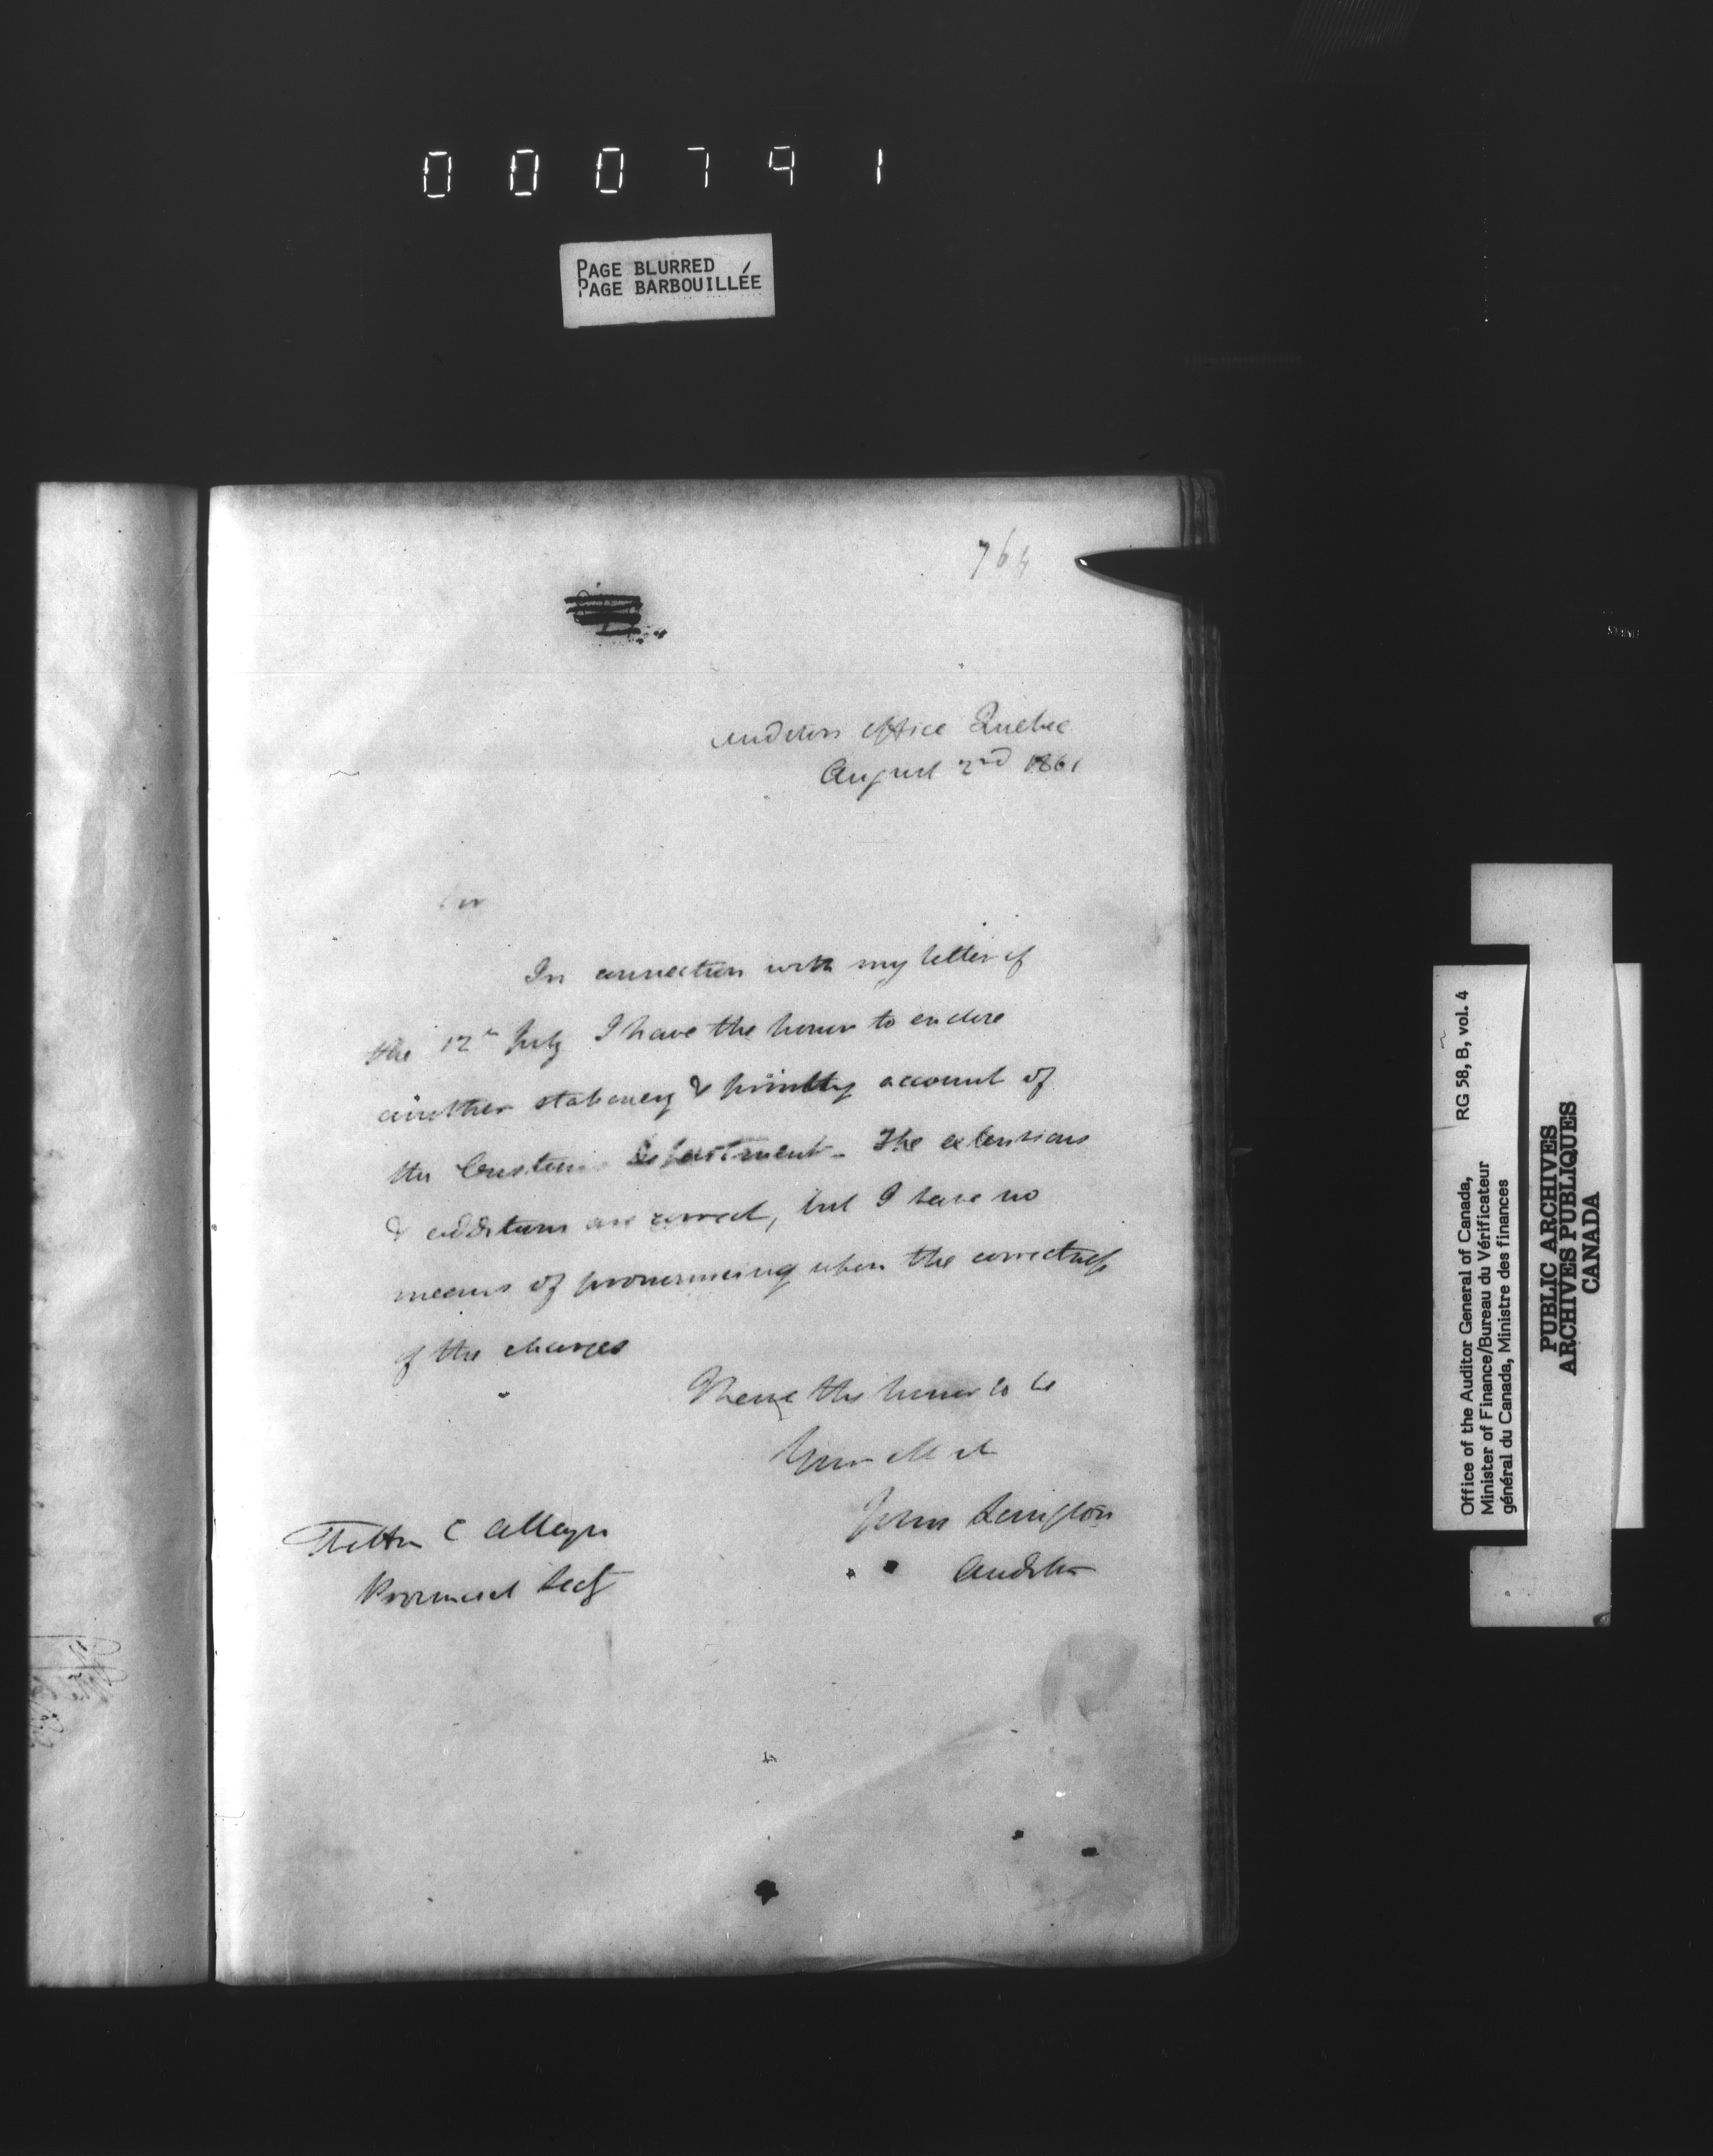 000791
PAGE BLURRED
PAGE BARBOUILLÉE
764
Auditors Office Quebec
August 2nd 1861
Sir
In connection with my letter of
the 12th July I have the honor to enclose
another stationery & printing account of
the Customs Department - The extensions
& additions are correct, but I have no
means of pronouncing upon the correctness
of the charges
I have the honor to be
Your
John Langton
Auditor
The Hon C Alleyn
Provincial Secy
RG 58, B, vol. 4
Office of the Auditor General of Canada,
Minister of Finance/Bureau du Vérificateur
général du Canada, Ministre des finances
PUBLIC ARCHIVES
ARCHIVES PUBLIQUES
CANADA